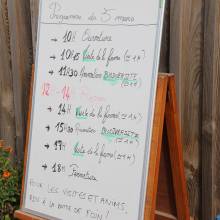 Programme du 5 mars
→ 10H Ouverture
→ 10H45 Visite de la ferme (≃1H)
→ 11H30 Animation BIODIVERSITÉ (≃1H)
12 - 14H
→ 14H Visite de la ferme (≃1H)
→ 15H30 Animation BIODIVERSITÉ (≃1H)
→ 17H Visite de la ferme (≃1H)
→ 18H Fermeture
POUR LES VISITES ET ANIMS,
RDV À LA BOTTE DE FOIN !